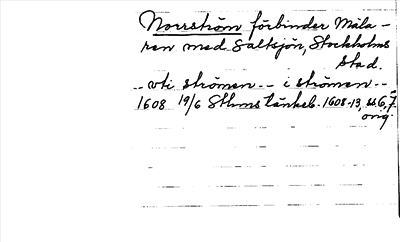 Norrström förbinder Mäla-
ren med Saltsjön, Stockholms
stad.
-- uti strömen -- i strömen --
1608 19/6 Sthms tänkeb. 1608-13, s. 6, 7
orig.